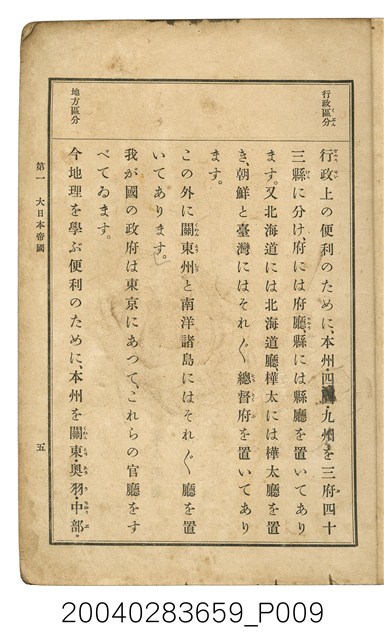 行政區分
地方區分
行政上の便利のために、本州・四國・九州を三府四十
三縣に分け、府には府廳、縣には縣廳を置いてあり
ます。又北海道には北海道廳、樺太には樺太廳を置
き、朝鮮と臺灣にはそれ〴〵總督府を置いてあり
ます。
この外に關東州と南洋諸島にはそれ〴〵廳を置
いてあります。
我が國の政府は東京にあつて、これらの官廳をす
べてゐます。
今地理を學ぶ便利のために、本州を關東・奧羽・中部・
第一 大日本帝國
五
20040283659_P009